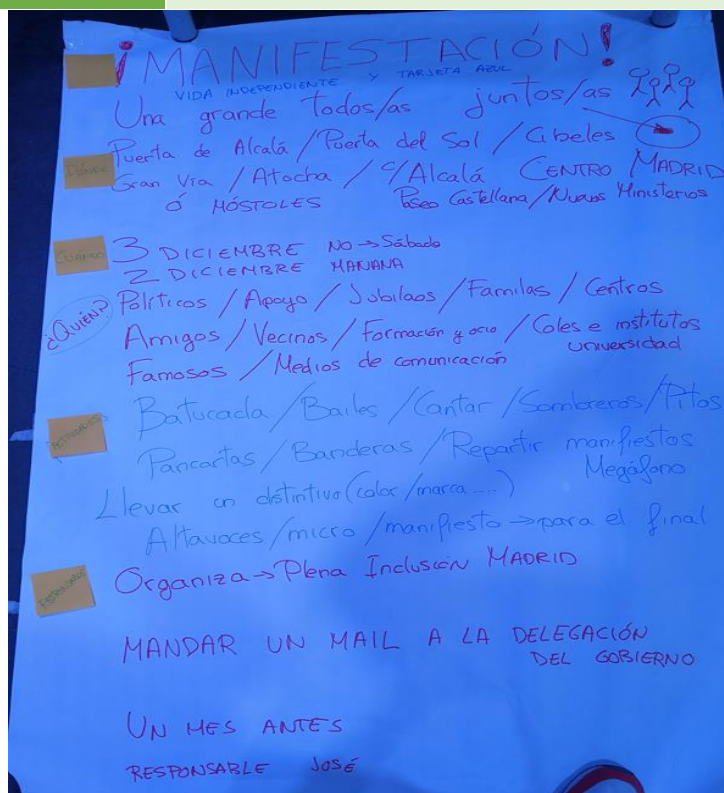 ¡MANIFESTACIÓN!
VIDA INDEPENDIENTE Y TARJETA AZUL
Una grande todos/as juntos/as
Puerta de Alcalá / Puerta del Sol / Cibeles
DÓNDE
Gran Vía / Atocha / C/ Alcalá CENTRO MADRID
Ó MÓSTOLES Paseo Castellana / Nuevos Ministerios
CUÁNDO
3 DICIEMBRE NO → Sábado
2 DICIEMBRE MAÑANA
¿QUIÉN?
Políticos / Apoyo / Jubilaos / Familas / Centros
Amigos / Vecinos / Formación y ocio / Coles e institutos
universidad
Famosos / Medios de comunicación
Batucada / Bailes / Cantar / Sombreros / Pitos
Pancartas / Banderas / Repartir manifiestos
Megáfono
Llevar un distintivo (color / marca ....)
Altavoces / micro / manifiesto → para el final
Organiza → Plena Inclusión MADRID
MANDAR UN MAIL A LA DELEGACIÓN
DEL GOBIERNO
UN MES ANTES
RESPONSABLE JOSÉ